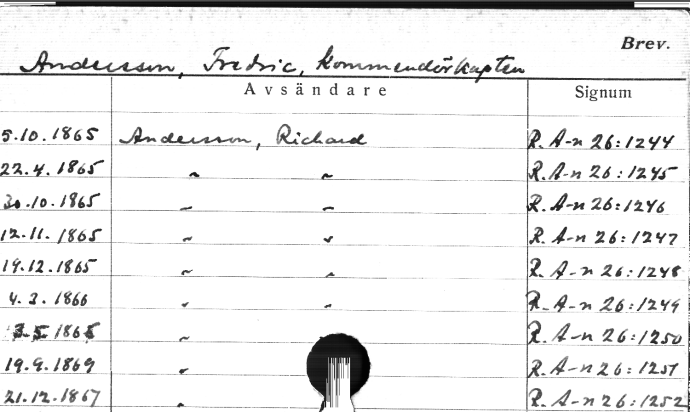 Brev.
Andersson, Fredric, Kommendörkapten
Avsändare Signum
5.10.1865 Andersson, Richard R. A-n 26:1244
22.4.1865 " " R. A-n 26:1245
30.10.1865 " " R. A-n 26:1246
12.11.1865 " " R. A-n 26:1247
19.12.1865 " " R. A-n 26:1248
4.3.1866 " " R. A-n 26:1249
" R. A-n 26:1250
19.9.1869 " R. A-n 26:1251
21.12.1867 " R. A-n 26:1252